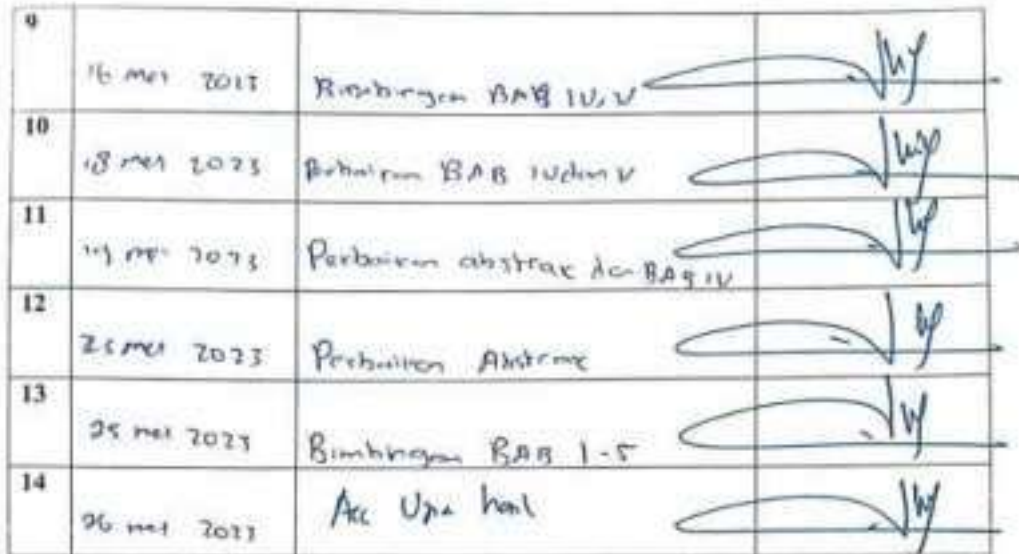 9
16 mei 2023 Bimbingan BAB IV, V
10
18 mei 2023 Perbaikan BAB IV dan V
11
19 mei 2023 Perbaikan abstrak dan BAB IV
12
mei 2023 Perbaikan Abstrak
13
25 mei 2023 Bimbingan BAB 1-5
14
26 mei 2023 Acc